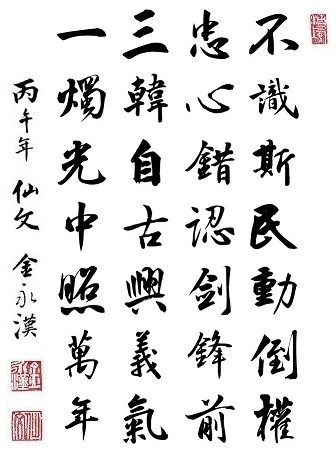 不識斯民動倒權
忠心錯認劍鋒前
三韓自古興義氣
一燭光中照萬年
丙午年 仙文 金永漢